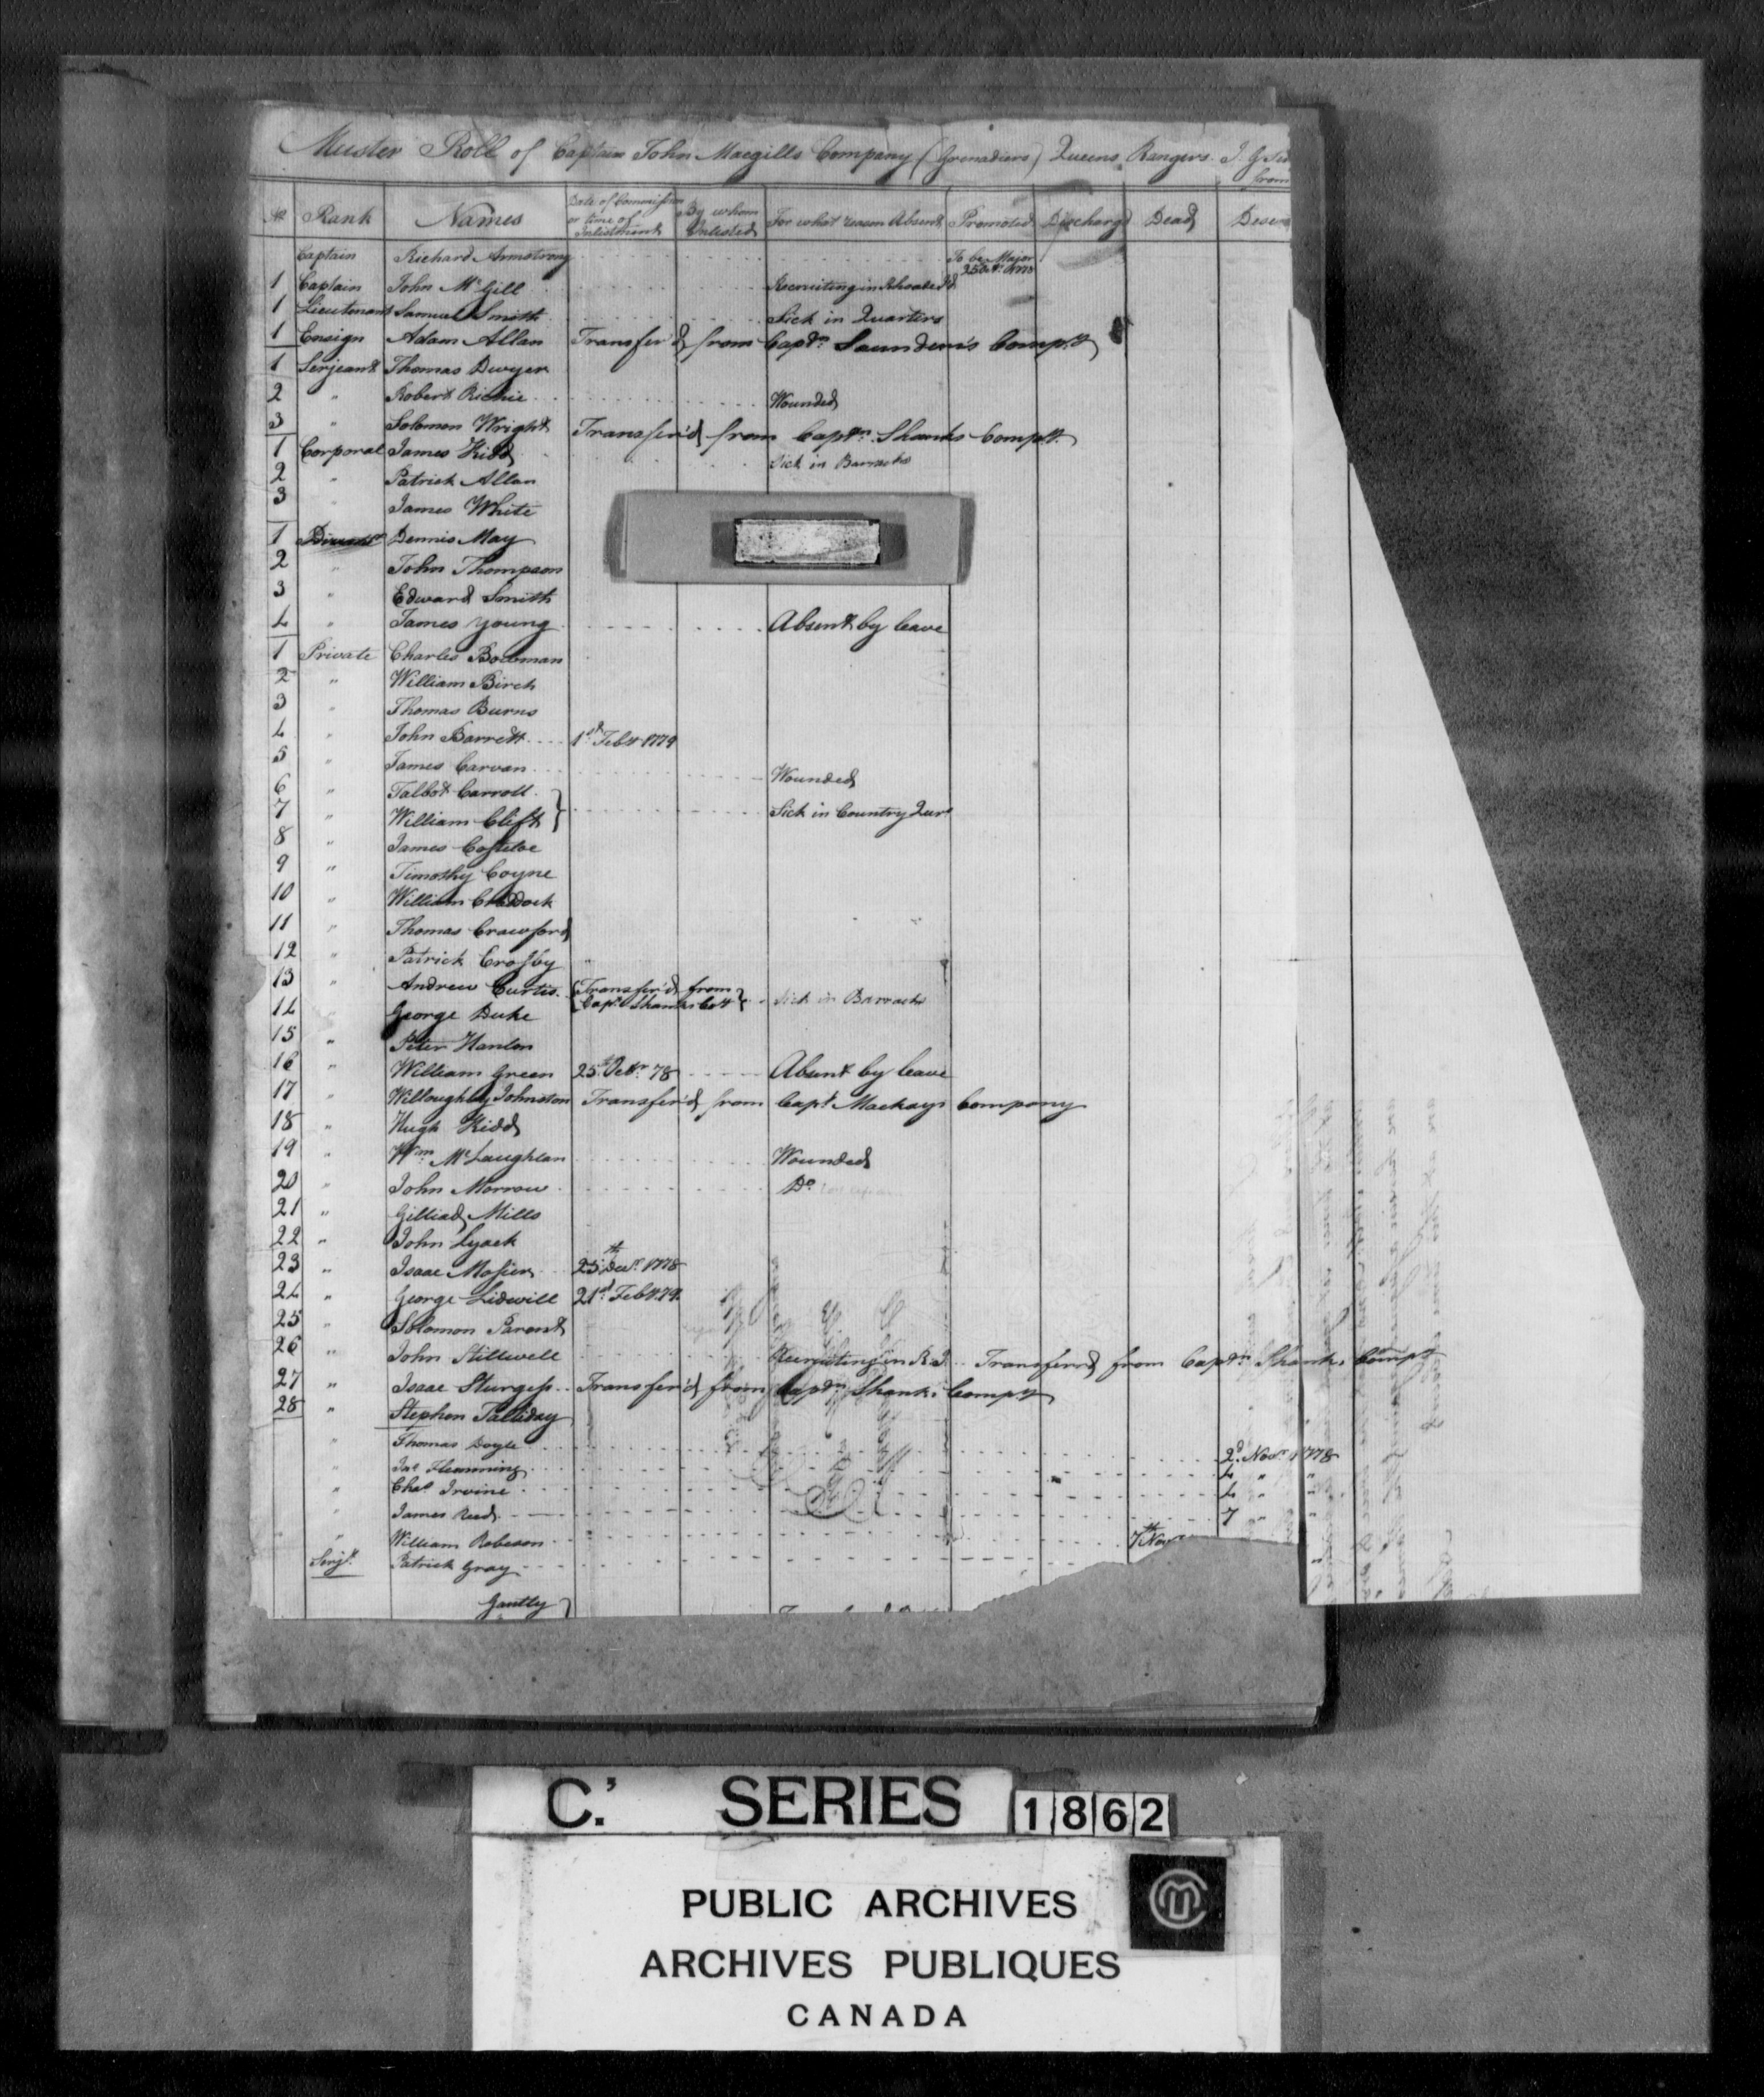 Muster Roll of Captain John Macgills Company (Grenadiers) Queens Rangers
from
No Rank Names Date of Commission or time of Inlistment By whom Inlisted For what reason Absent Promoted Discharg'd Dead Deser
Captain Richard Armstrong To be Major 25 Octr. 1778
1 Captain John McGill Recruiting in
1 Lieutenant Samuel Smith Sick in Quarters
1 Ensign Adam Allan Transfer'd from Captn. Saunders's Compy
1 Serjeant Thomas Dwyer
2 " Robert Richie Wounded
3 " Solomon Wright Transfer'd from Captn. Shanks Compy.
1 Corporal James Kidd Sick in Barracks
2 " Patrick Allan
3 James White
1 Dennis May
2 " John Thompson
3 " Edward Smith
4 " James Young Absent by leave
1 Private Charles Bowman
2 " William Birch
3 " Thomas Burns
4 " John Barrett 1st Feby 1779
5 " James Carvan Wounded
6 " Talbot Carroll
7 " William Clift } Sick in Country Qurs
8 " James Costeloe
9 " Timothy Coyne
10 " William
11 " Thomas Crawford
12 " Patrick Crosby
13 " Andrew Curtis {Transfer'd from Capt. Shanks Coy} Sick in Barracks
14 George Duke
15 " Peter Hanlon
16 " William Green 25th Octr. 78 Absent by leave
17 " Willoughby Johnston Transfer'd from Capt. Mackays Company
18 " Hugh Kidd
19 " Wm. McLaughlan Wounded
20 " John Morrow Do
21 " Gilliad Mills
22 " John Lyack
23 " Isaac Mosier 25th Decr. 1778
24 " George Lidwill 21st Feby. 79.
25 " Solomon Parent
26 " John Stillwell Recruiting in R.I. Transferred from Captn. Shanks Compy
27 " Isaac Sturgess Transfer'd from Captn. Shanks Compy
28 " Stephen Talliday
" Thomas Doyle 2d. Novr. 1778
" Jas Flemming 4 " "
" Chas Irvine 4 " "
" James Reed 7 " "
" William Robeson 7th Nov
Serjt. Patrick Gray "
Gantly }
C.' SERIES 1862
PUBLIC ARCHIVES
ARCHIVES PUBLIQUES
CANADA